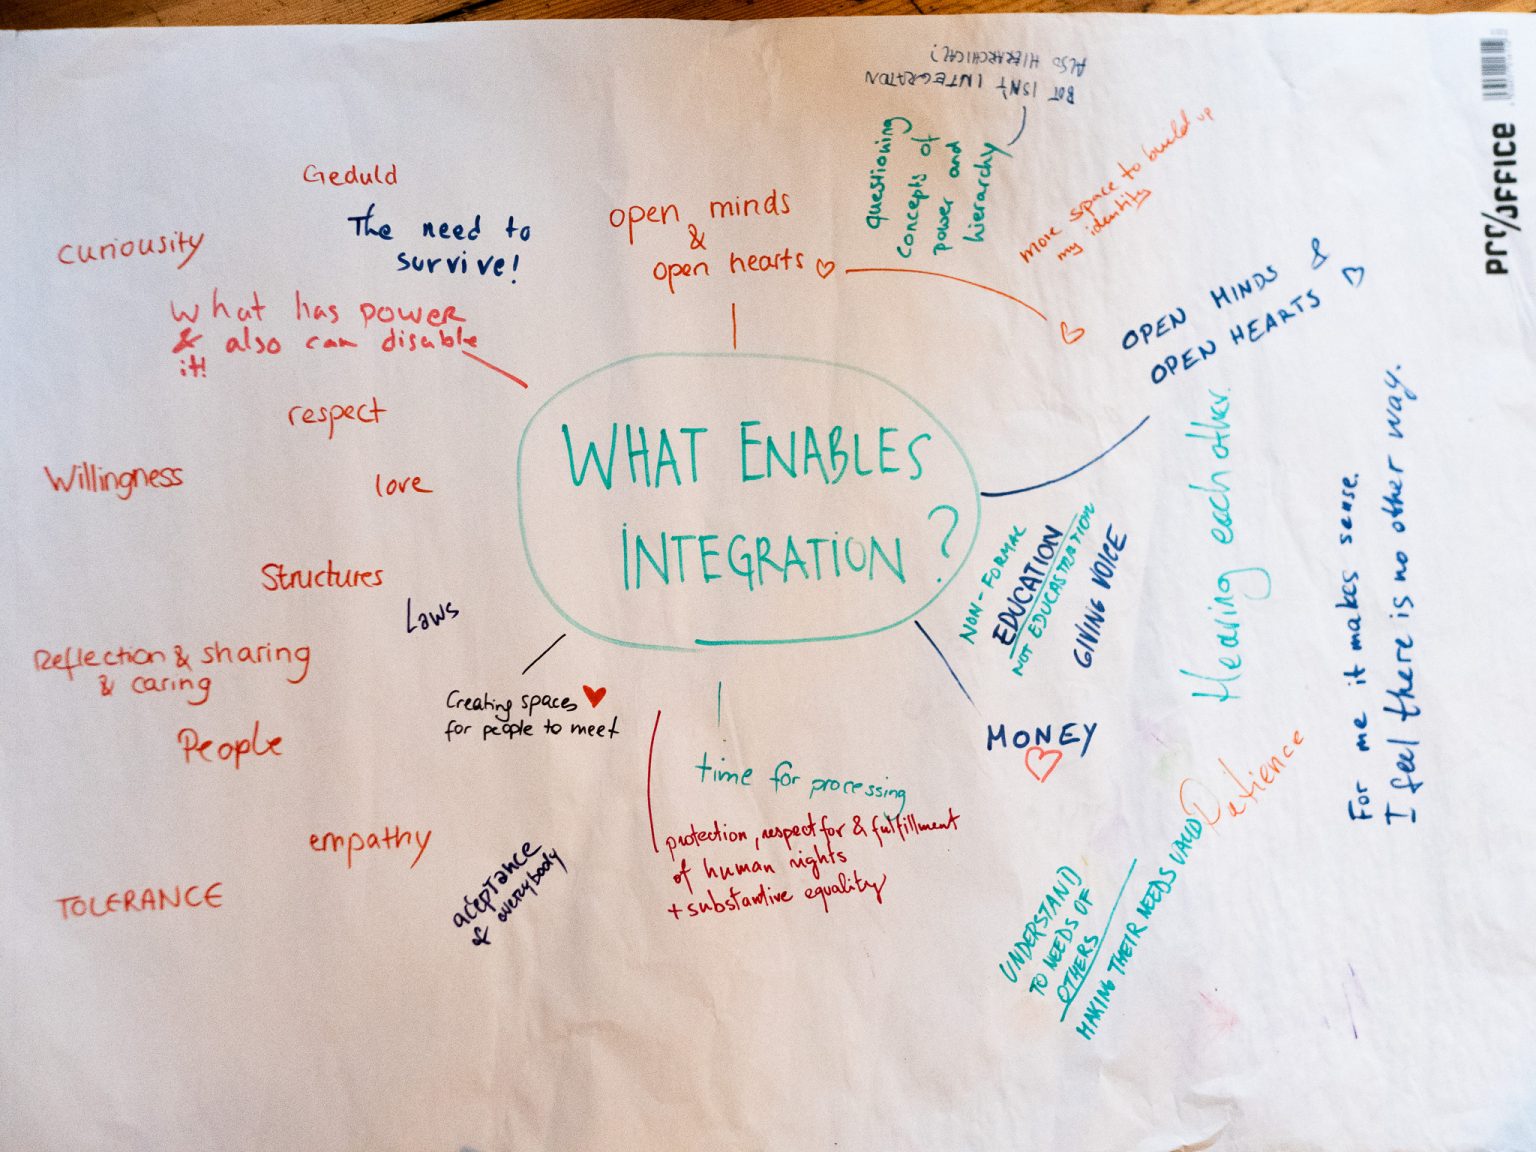 ALSO HIERARCHICAL?
BUT ISN'T INTEGRATION
questioning
concepts of
power and
hierarchy
more space to build up
my identity
pro/office
Geduld
The need to
survive!
curiousity
open minds
&
open hearts
OPEN MINDS &
OPEN HEARTS
What has power
& also can disable
it!
respect
Willingness
love
WHAT ENABLES
INTEGRATION?
Structures
Laws
Reflection & sharing
& caring
People
Creating spaces
for people to meet
empathy
TOLERANCE
acceptance
of everybody
time for processing
protection, respect for & fulfillment
of human rights
+ substantive equality
NON-FORMAL
EDUCATION
NOT EDUCASTRATION
GIVING VOICE
MONEY
Hearing each other.
For me it makes sense.
I feel there is no other way.
Patience
UNDERSTAND
TO NEEDS OF
OTHERS
MAKING THEIR NEEDS VALID